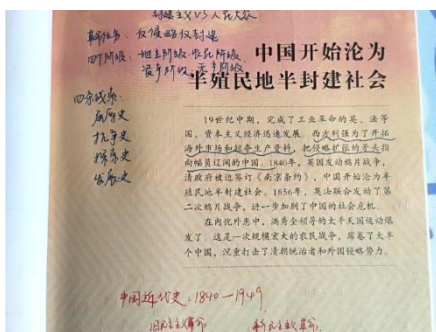 封建主义VS人民大众
革命任务：反侵略反封建
四个阶级：地主阶级、农民阶级、
资产阶级、无产阶级
中国开始沦为
半殖民地半封建社会
四条线索：
屈辱史
抗争史
探索史
发展史
19世纪中期，完成了工业革命的英、法等
国，资本主义经济迅速发展。西方列强为了开拓
海外市场和掠夺生产资料，把侵略扩张的矛头指
向幅员辽阔的中国。1840年，英国发动鸦片战争，
清政府被迫签订《南京条约》，中国开始沦为半
殖民地半封建社会。1856年，英法联合发动了第
二次鸦片战争，进一步加剧了中国的社会危机。
在内忧外患中，洪秀全领导的太平天国运动爆
发了。这是一次规模宏大的农民战争，席卷了大半
个中国，沉重打击了清朝统治者和外国侵略势力。
中国近代史：1840—1949
旧民主主义革命 新民主主义革命